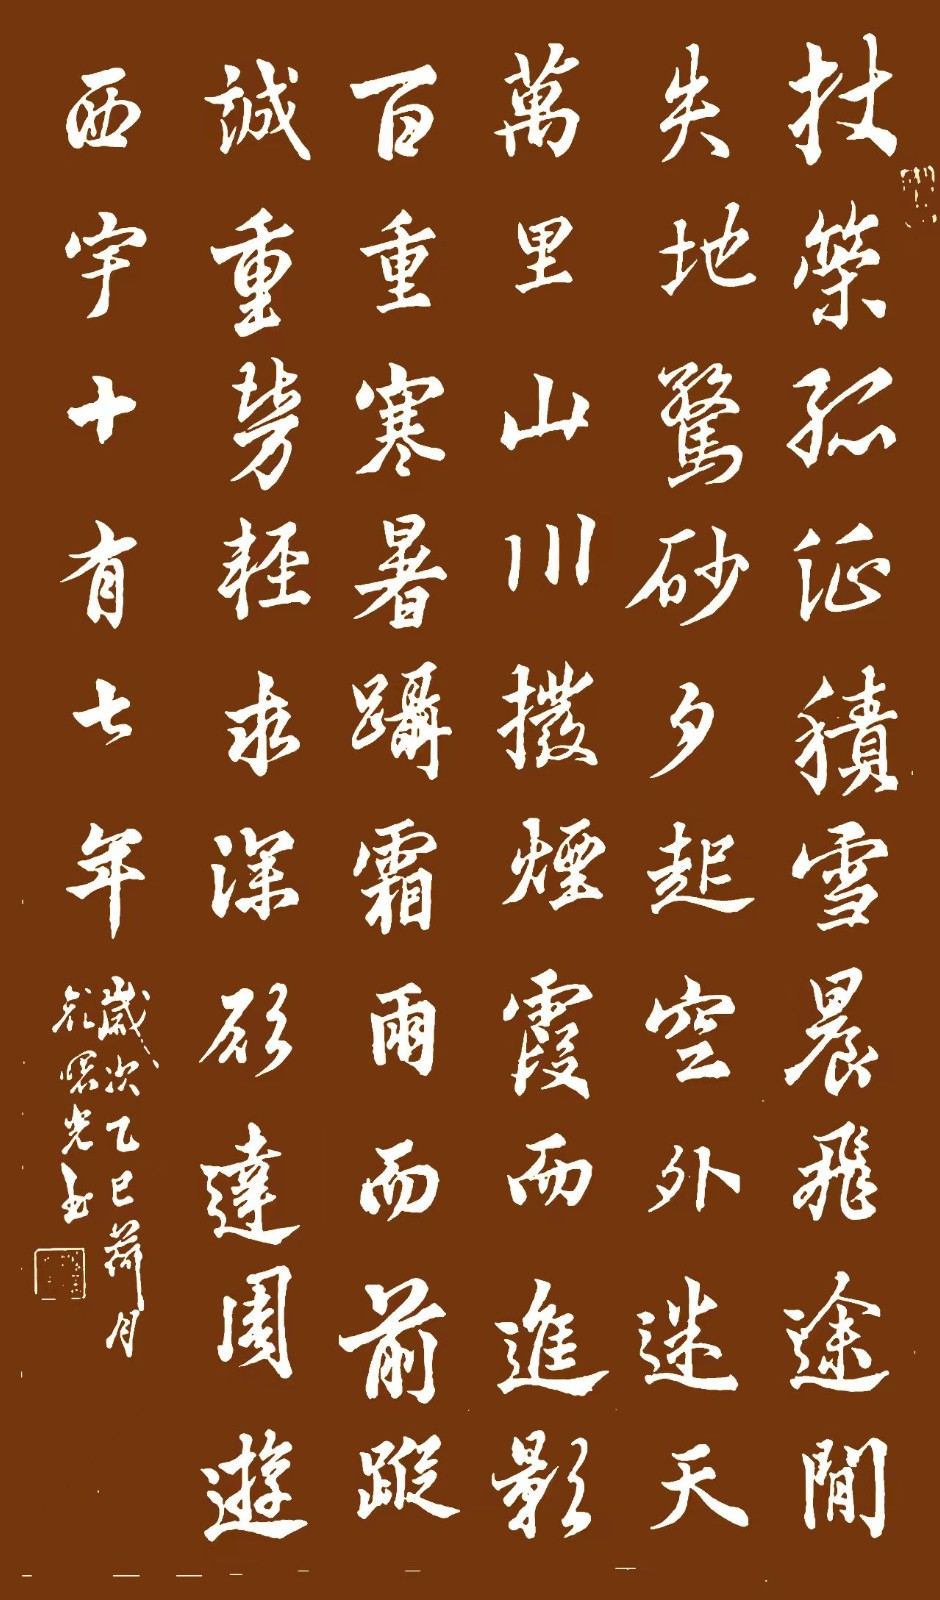 杖策孤征積雪晨飛途間
失地驚砂夕起空外迷天
萬里山川撥煙霞而進影
百重寒暑躡霜雨而前蹤
誠重勞輕求深願達周遊
西宇十有七年
歲次乙巳荷月
光书